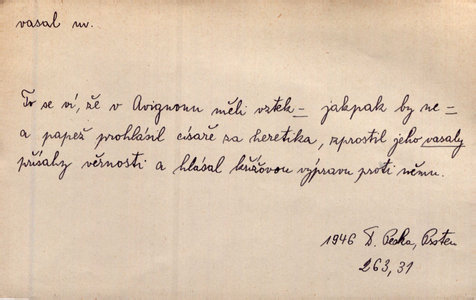 vasal m.
To se ví, že v Avignonu měli vztek – jakpak by ne –
a papež prohlásil císaře za heretika, zprostil jeho vasaly
přísahy věrnosti a hlásal křížovou výpravu proti němu.
1946 D. Pecka,
263, 31